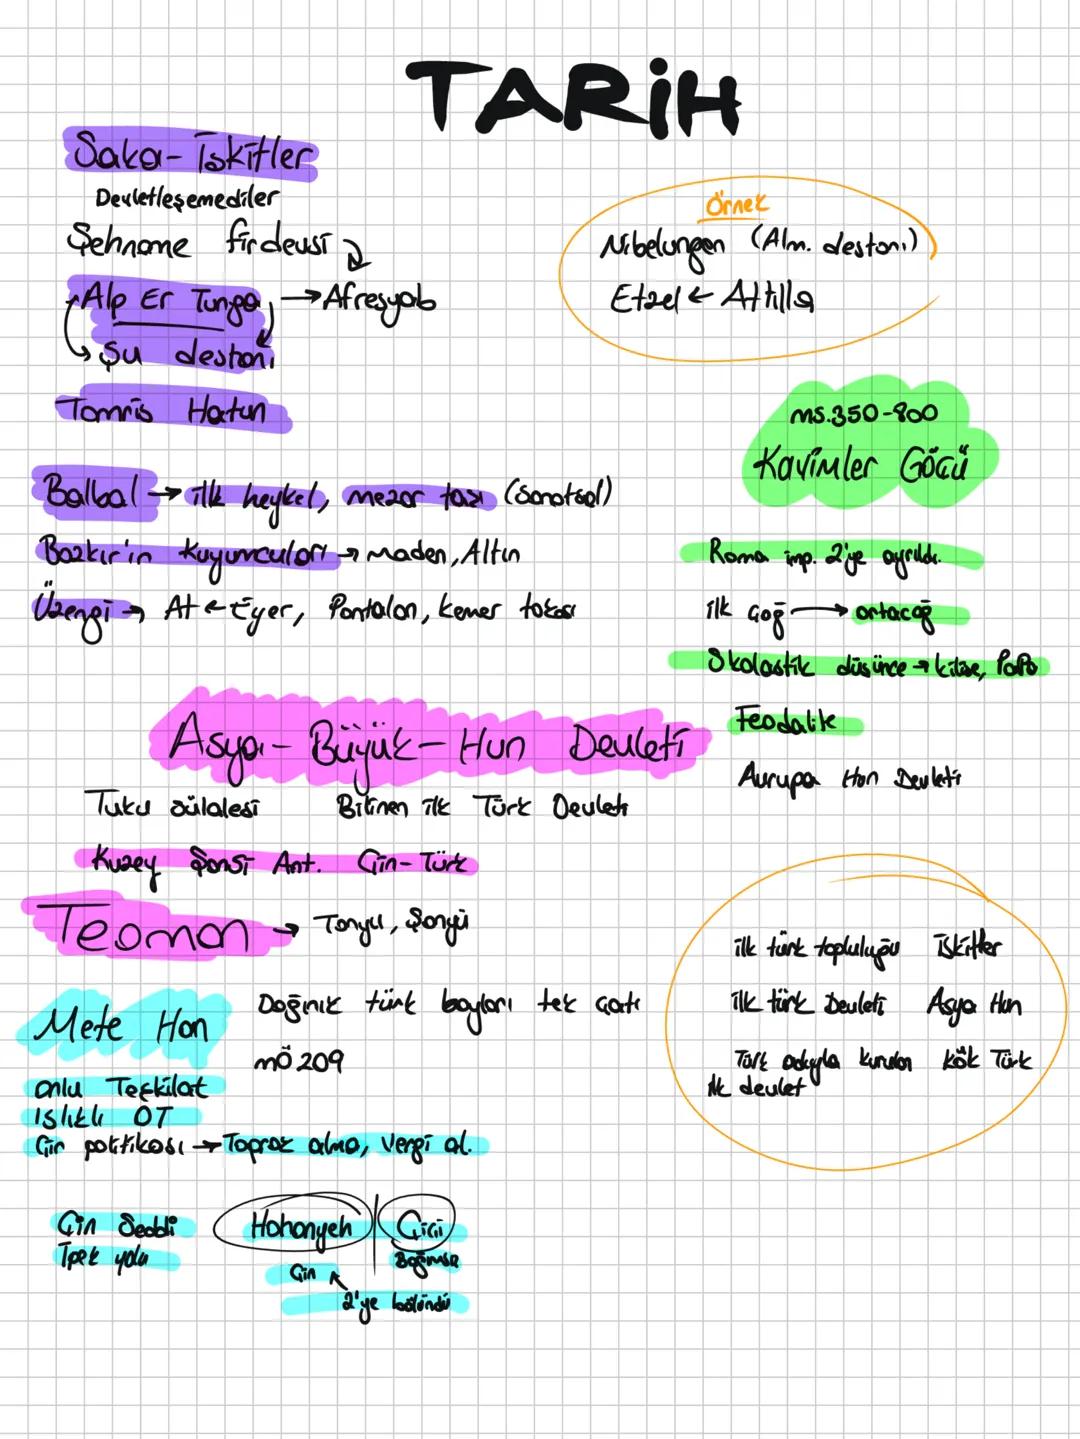 TARİH
Saka- İskitler
Devletleşemediler
Şehname firdevsi
Alp Er Tunga → Afresyab
Şu destanı
Tomris Hatun
Balbal → ilk heykel, mezar taşı (Sanatsal)
Bozkır'ın Kuyumcuları → maden, Altın
Üzengi → At ← Eyer, Pantalon, kemer tokası
Örnek
Nibelungen (Alm. destanı)
Etzel ← Attilla
ms.350-800
Kavimler Göçü
Roma imp. 2'ye ayrıldı.
ilk çağ → ortaçağ
Skolastik düşünce → kilise, Papa
Feodalite
Avrupa Hun Devleti
Asya- Büyük- Hun Devleti
Tuku sülalesi Bilinen ilk Türk Devleti
Kuzey Şansi Ant. Çin- Türk
Teoman → Tanyu, Şanyü
Mete Han
Dağınık türk boyları tek çatı
mÖ 209
Onlu Teşkilat
Islıklı OT
Çin politikası → Toprak alma, vergi al.
Çin Seddi
İpek yolu
Hohanyeh | Çiçi
Çin Bağımsız
2'ye bölündü
ilk türk topluluğu İskitler
ilk türk Devleti Asya Hun
Türk adıyla kurulan Kök Türk
ilk devlet